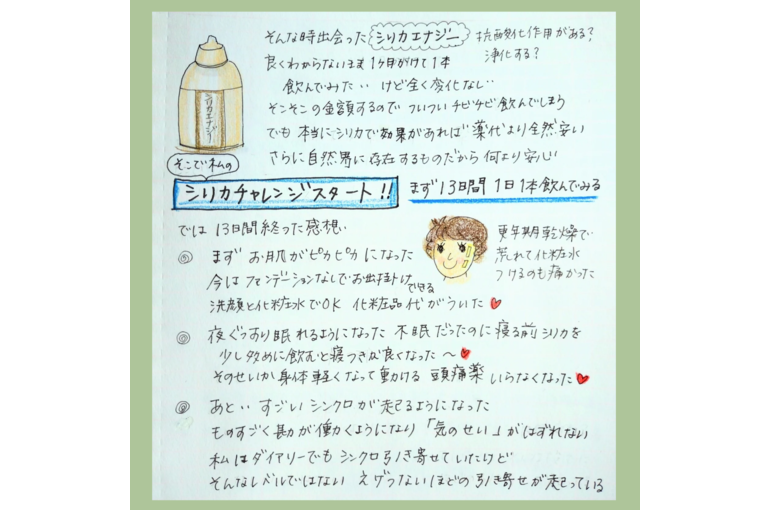 そんな時出会った シリカエナジー 抗酸化作用がある?
浄化する?
良くわからないまま 1ヶ月かけて1本
飲んでみた‥ けど全く変化なし‥
そこそこの金額するので ついつい チビチビ飲んでしまう
でも 本当にシリカで効果があれば 薬代より全然安い
さらに自然界に存在するものだから 何より安心
シリカエナジー
そこで私の
シリカチャレンジスタート!! まず13日間 1日1本飲んでみる
では 13日間終った感想、
更年期乾燥で
荒れて化粧水
つけるのも痛かった
◎ まず お肌がピカピカになった
今は ファンデーションなしでお出掛けできる
洗顔と化粧水でOK 化粧品代がういた♥
◎ 夜ぐっすり眠れるようになった 不眠だったのに寝る前シリカを
少し多めに飲むと寝つきが良くなった〜♥
そのせいか 身体軽くなって動ける 頭痛薬 いらなくなった♥
◎ あと‥ すごい シンクロが起こるようになった
ものすごく勘が働くようになり 「気のせい」がはずれない
私はダイアリーでも シンクロ引き寄せていたけど
そんなレベルではない えげつないほどの引き寄せが起っている